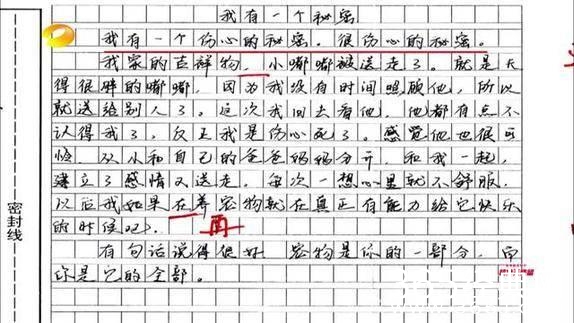 我有一个秘密
我有一个伤心的秘密。很伤心的秘密。
我家的吉祥物，小嘟嘟被送走了。就是长
得很胖的嘟嘟，因为我没有时间照顾他，所以
就送给别人了。这次我回去看他，他都有点不
认得我了，反正我是伤心死了。感觉他也很可
怜，从小和自己的爸爸妈妈分开，和我一起，
建立了感情又送走。每次一想心里就不舒服，
以后我如果在养宠物就在真正有能力给它快乐
的时候吧。
再
有句话说得很好 宠物是你的一部分，而
你是它的全部。
密封线